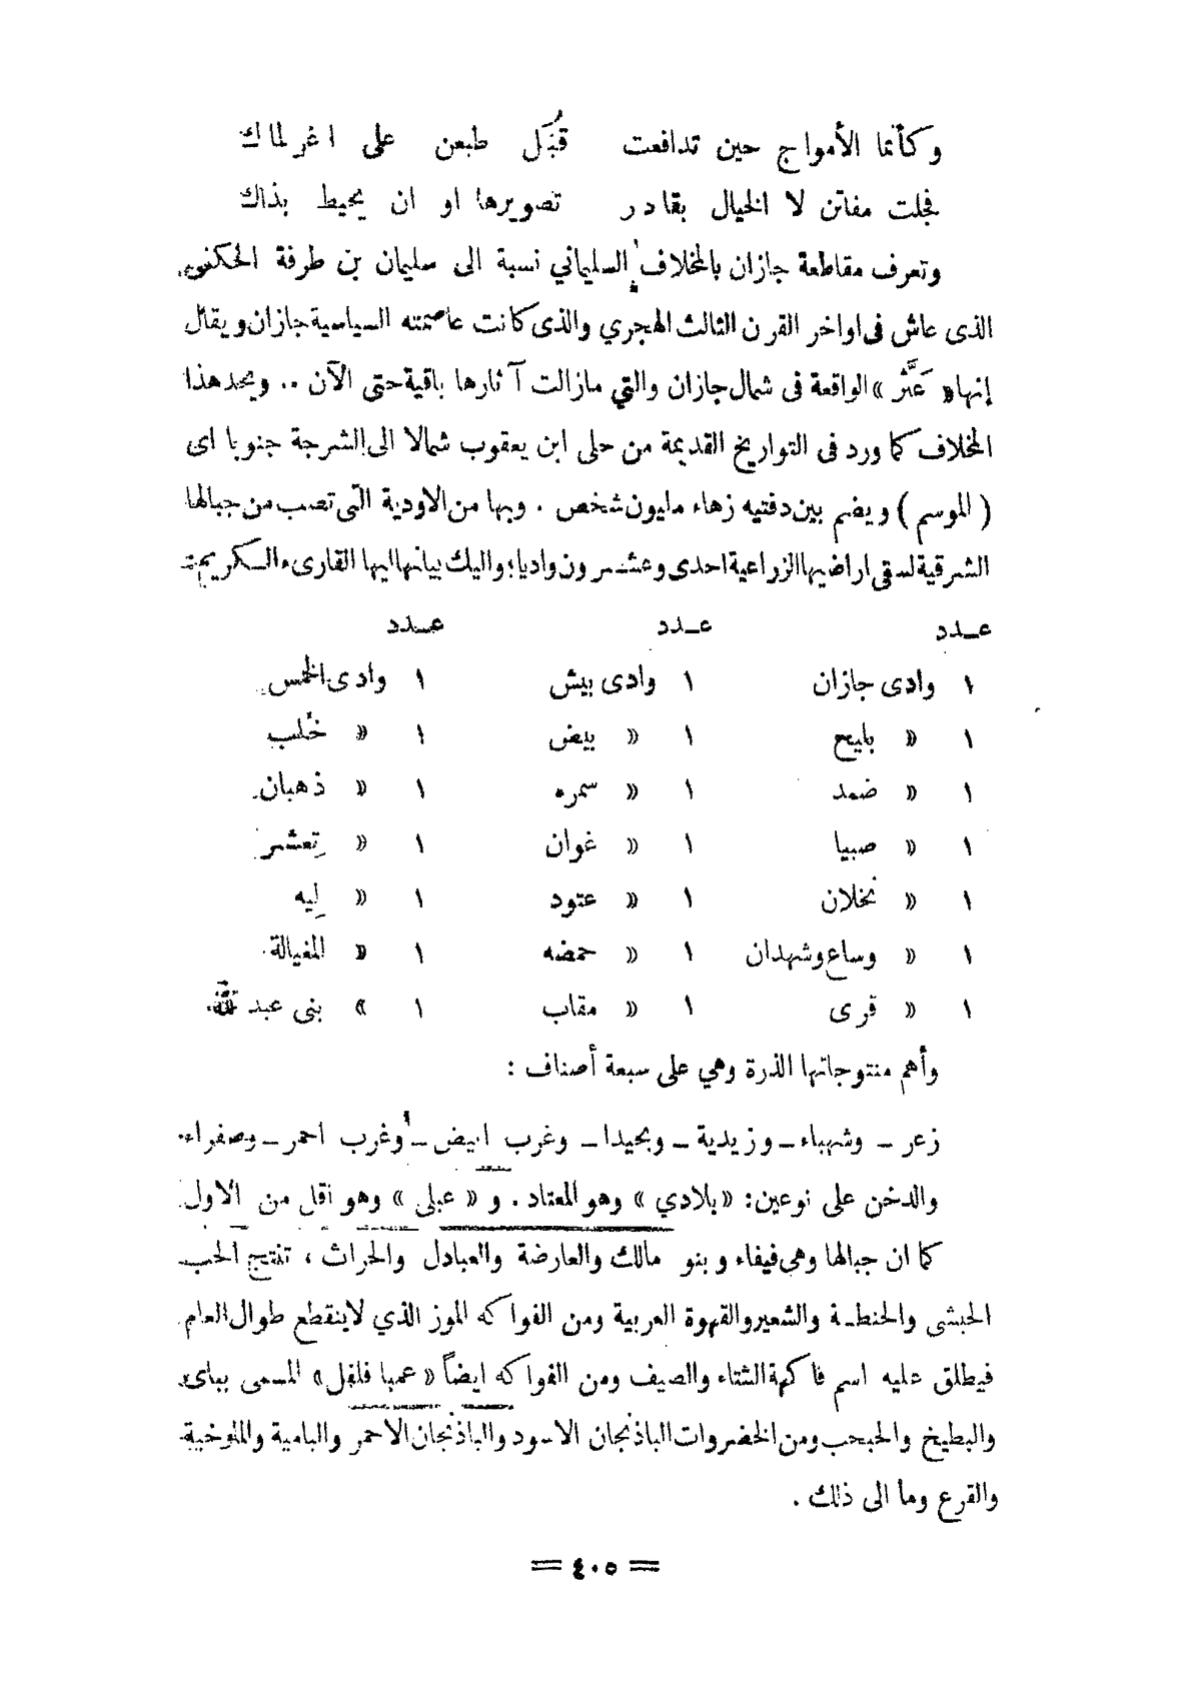 وكأنما الأمواج حين تدافعت قُبَل طبعن على اغر لماك
فجلت مفاتن لا الخيال بقادر تصويرها او ان يحيط بذاك
وتعرف مقاطعة جازان بالمخلاف السليماني نسبة الى سليمان بن طرفة الحكمي
الذى عاش فى اواخر القرن الثالث الهجري والذى كانت عاصمته السياسية جازان ويقال
إنها « عَثَّر » الواقعة فى شمال جازان والتي مازالت آثارها باقية حتى الآن .. ويحد هذا
المخلاف كما ورد فى التواريخ القديمة من حلى ابن يعقوب شمالا الى الشرجة جنوبا اى
( الموسم ) ويضم بين دفتيه زهاء مليون شخص . وبها من الاودية التى تصب من جبالها
الشرقية لسقى اراضيها الزراعية احدى وعشرون واديا؛ واليك بيانها ايها القارىء الكريم :
عـدد عـدد عـدد
١ وادى جازان ١ وادى بيش ١ وادى الخمس
١ « بليح ١ « بيض ١ « خُلب
١ « ضمد ١ « سمره ١ « ذهبان
١ « صبيا ١ « غوان ١ « تِعشر
١ « نخلان ١ « عتود ١ « لِيه
١ « وساع وشهدان ١ « حمضه ١ « المغيالة
١ « قرى ١ « مقاب ١ » بنى عبد الله
وأهم منتوجاتها الذرة وهي على سبعة أصناف :
زعر ــ وشهباء ــ وزيدية ــ وبجيدا ــ وغرب ابيض ــ وغرب احمر ــ وصفراء
والدخن على نوعين: « بلادي » وهو المعتاد . و « عبلى » وهو اقل من الاول
كما ان جبالها وهى فيفاء وبنو مالك والعارضة والعبادل والحراث ، تنتج الحب
الحبشى والحنطـة والشعير والقهوة العربية ومن الفواكه الموز الذي لاينقطع طوال العام
فيطلق عليه اسم فاكهة الشتاء والصيف ومن الفواكه ايضاً « عمبا فلفل » المسمى بباى
والبطيخ والحبحب ومن الخضروات الباذنجان الاسود والباذنجان الاحمر والبامية والملوخية
والقرع وما الى ذلك .
== ٤٠٥ ==